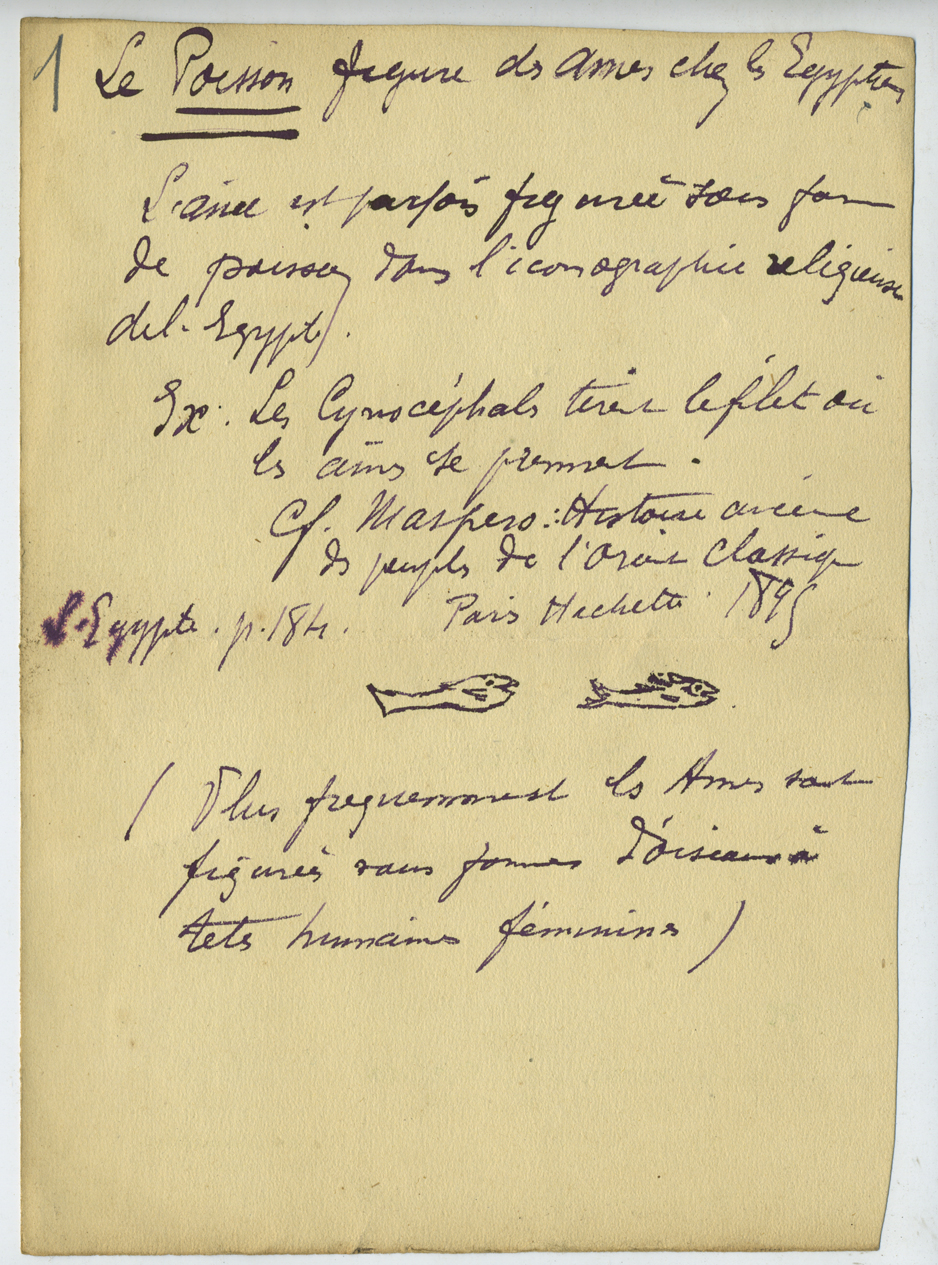 1 Le Poisson figure des ames chez les Egyptiens
L'âme est parfois figurée sous form
de poisson dans l'iconographie religieuse
de l'Egypte.
Ex: Les Cynocéphales tirent le filet où
les âmes se prennent.
Cf. Maspero: Histoire ancienne
des peuples de l'Orient classique
L'Egypte. p. 184. Paris Hachette. 1895
( Plus frequemment les Ames sont
figurées sous formes d'oiseaux à
tetes humaines féminines )